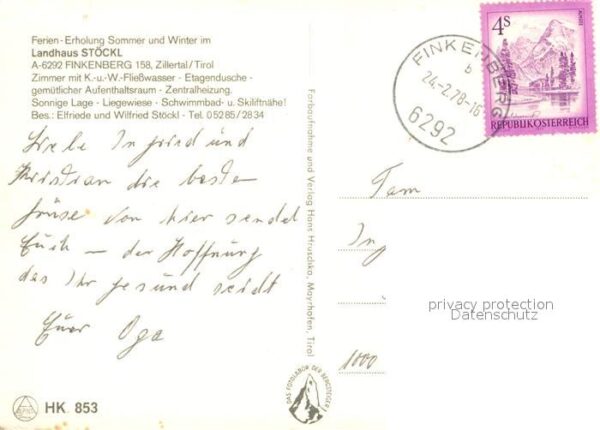 Ferien-Erholung Sommer und Winter im
Landhaus STÖCKL
A-6292 FINKENBERG 158, Zillertal/Tirol
Zimmer mit K.-u.-W.-Fließwasser - Etagendusche -
gemütlicher Aufenthaltsraum - Zentralheizung.
Sonnige Lage - Liegewiese - Schwimmbad- u. Skiliftnähe!
Bes.: Elfriede und Wilfried Stöckl - Tel. 05285/2834
Liebe Ingrid und
Kristian die besten
Grüße von hier sendet
Euch — der Hoffnung
das Ihr gesund seidt
Euer Opa
HK 853
Farbaufnahme und Verlag Hans Hruschka, Mayrhofen, Tirol
DAS FOTOLABOR DER BERGSTEIGER
FINKENBERG
b
24.-2.78-16
6292
4S
REPUBLIK ÖSTERREICH
Fam
Ing
1000
privacy protection
Datenschutz